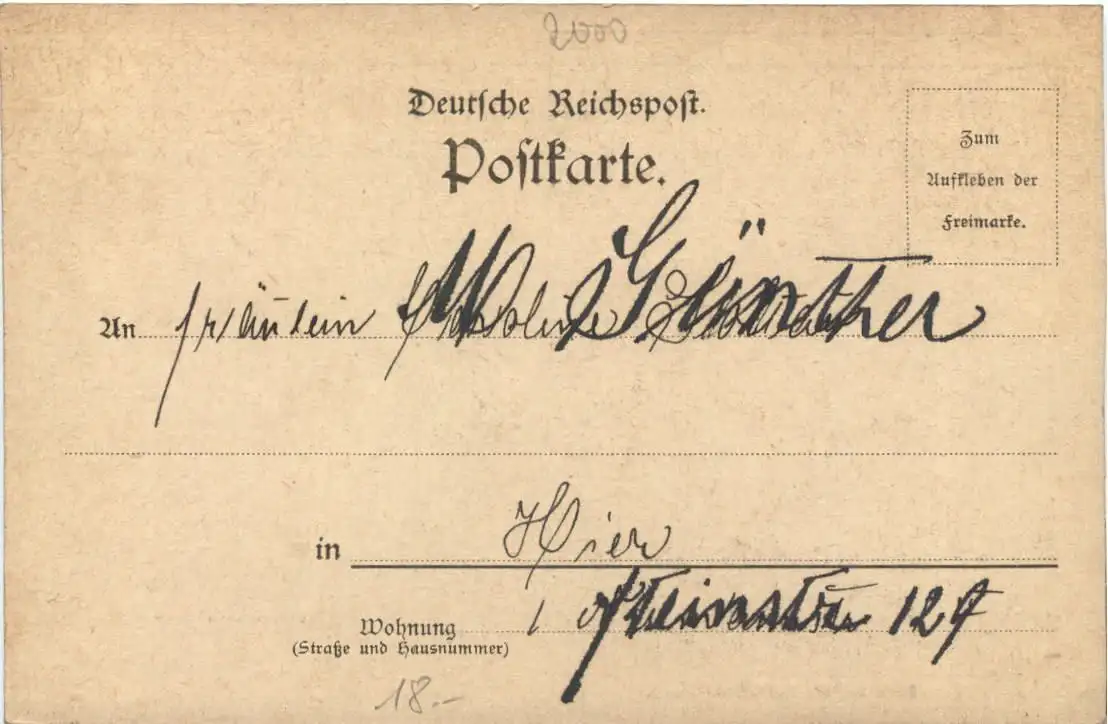 2000
Deutsche Reichspost.
Postkarte.
Zum
Aufkleben der
Freimarke.
An Fräulein Günther
in Hier
Wohnung
(Straße und Hausnummer)
18.-